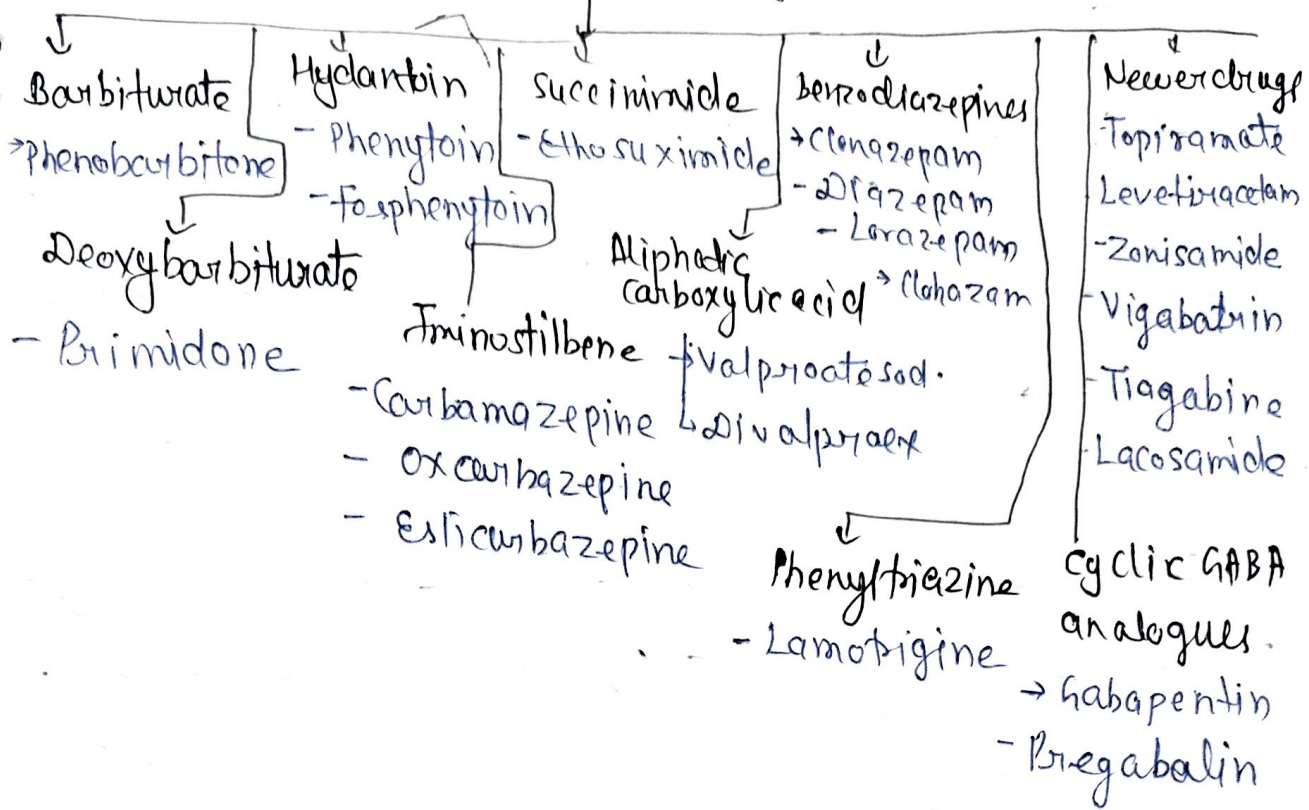 Barbiturate
→Phenobarbitone
Deoxybarbiturate
- Primidone
Hydantoin
- Phenytoin
- Fosphenytoin
Iminostilbene
- Carbamazepine
- Oxcarbazepine
- Eslicarbazepine
Succinimide
- Ethosuximide
Aliphatic
Carboxylic acid
Valproate sod.
Divalproex
Benzodiazepines
→ Clonazepam
- Diazepam
- Lorazepam
→ Clobazam
Phenyltriazine
- Lamotrigine
Newer drugs
- Topiramate
Levetiracetam
- Zonisamide
- Vigabatrin
- Tiagabine
- Lacosamide
Cyclic GABA
analogues.
→ Gabapentin
- Pregabalin